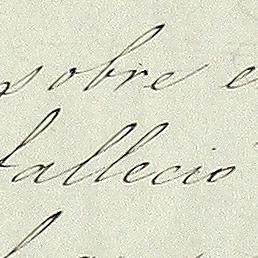 sobre e
falleció